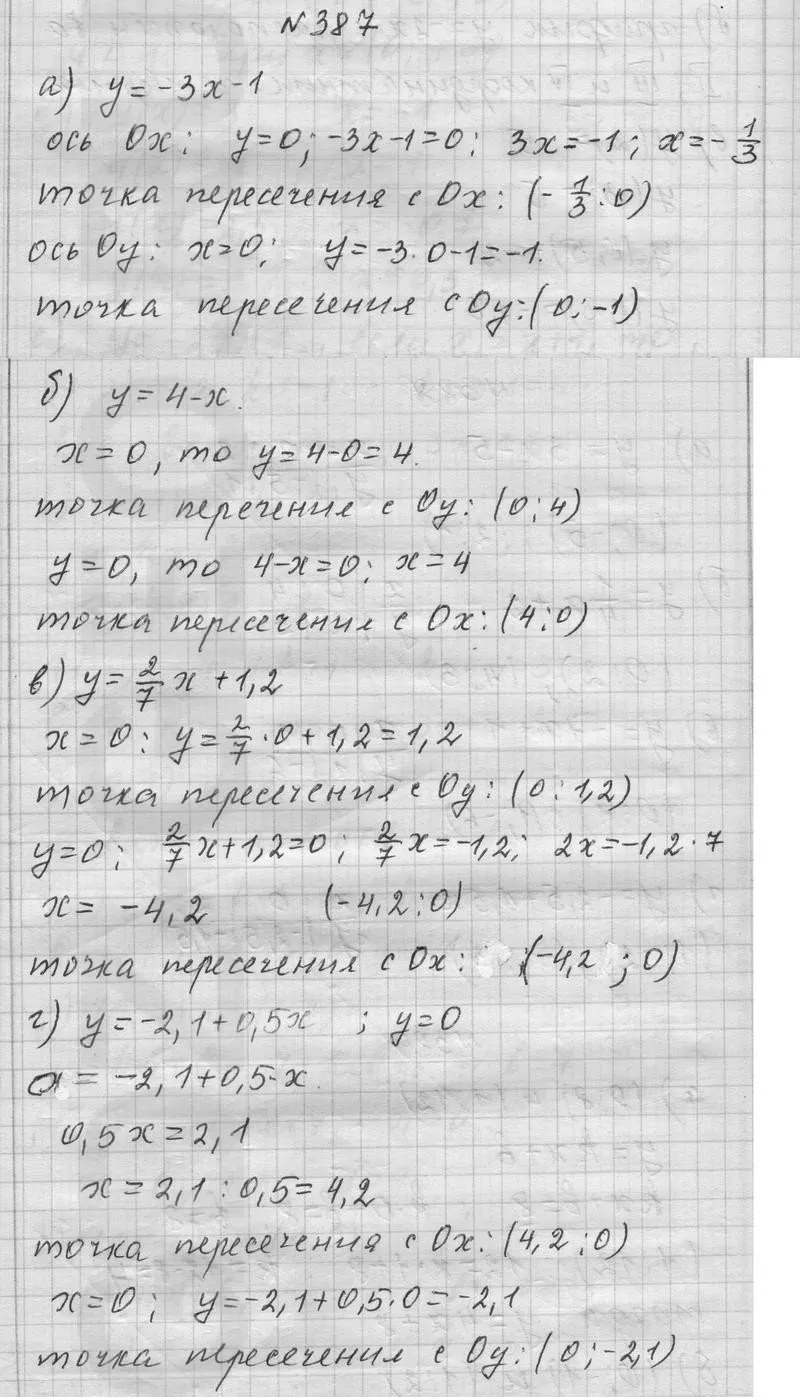 №387
а) y=-3x-1
ось Ox: y=0; -3x-1=0; 3x=-1; x=-1/3
точка пересечения с Ox: (-1/3:0)
ось Oy: x=0; y=-3·0-1=-1.
точка пересечения с Oy: (0;-1)
б) y=4-x.
x=0, то y=4-0=4.
точка перечения с Oy: (0;4)
y=0, то 4-x=0; x=4
точка пересечения с Ox: (4;0)
в) y=2/7 x+1,2
x=0: y=2/7·0+1,2=1,2
точка пересечения с Oy: (0:1,2)
y=0; 2/7 x+1,2=0; 2/7 x=-1,2; 2x=-1,2·7
x= -4,2 (-4,2;0)
точка пересечения с Ox: (-4,2;0)
г) y=-2,1+0,5x ; y=0
0=-2,1+0,5·x.
0,5x=2,1
x=2,1:0,5=4,2
точка пересечения с Ox: (4,2;0)
x=0; y=-2,1+0,5·0=-2,1
точка пересечения с Oy: (0;-2,1)